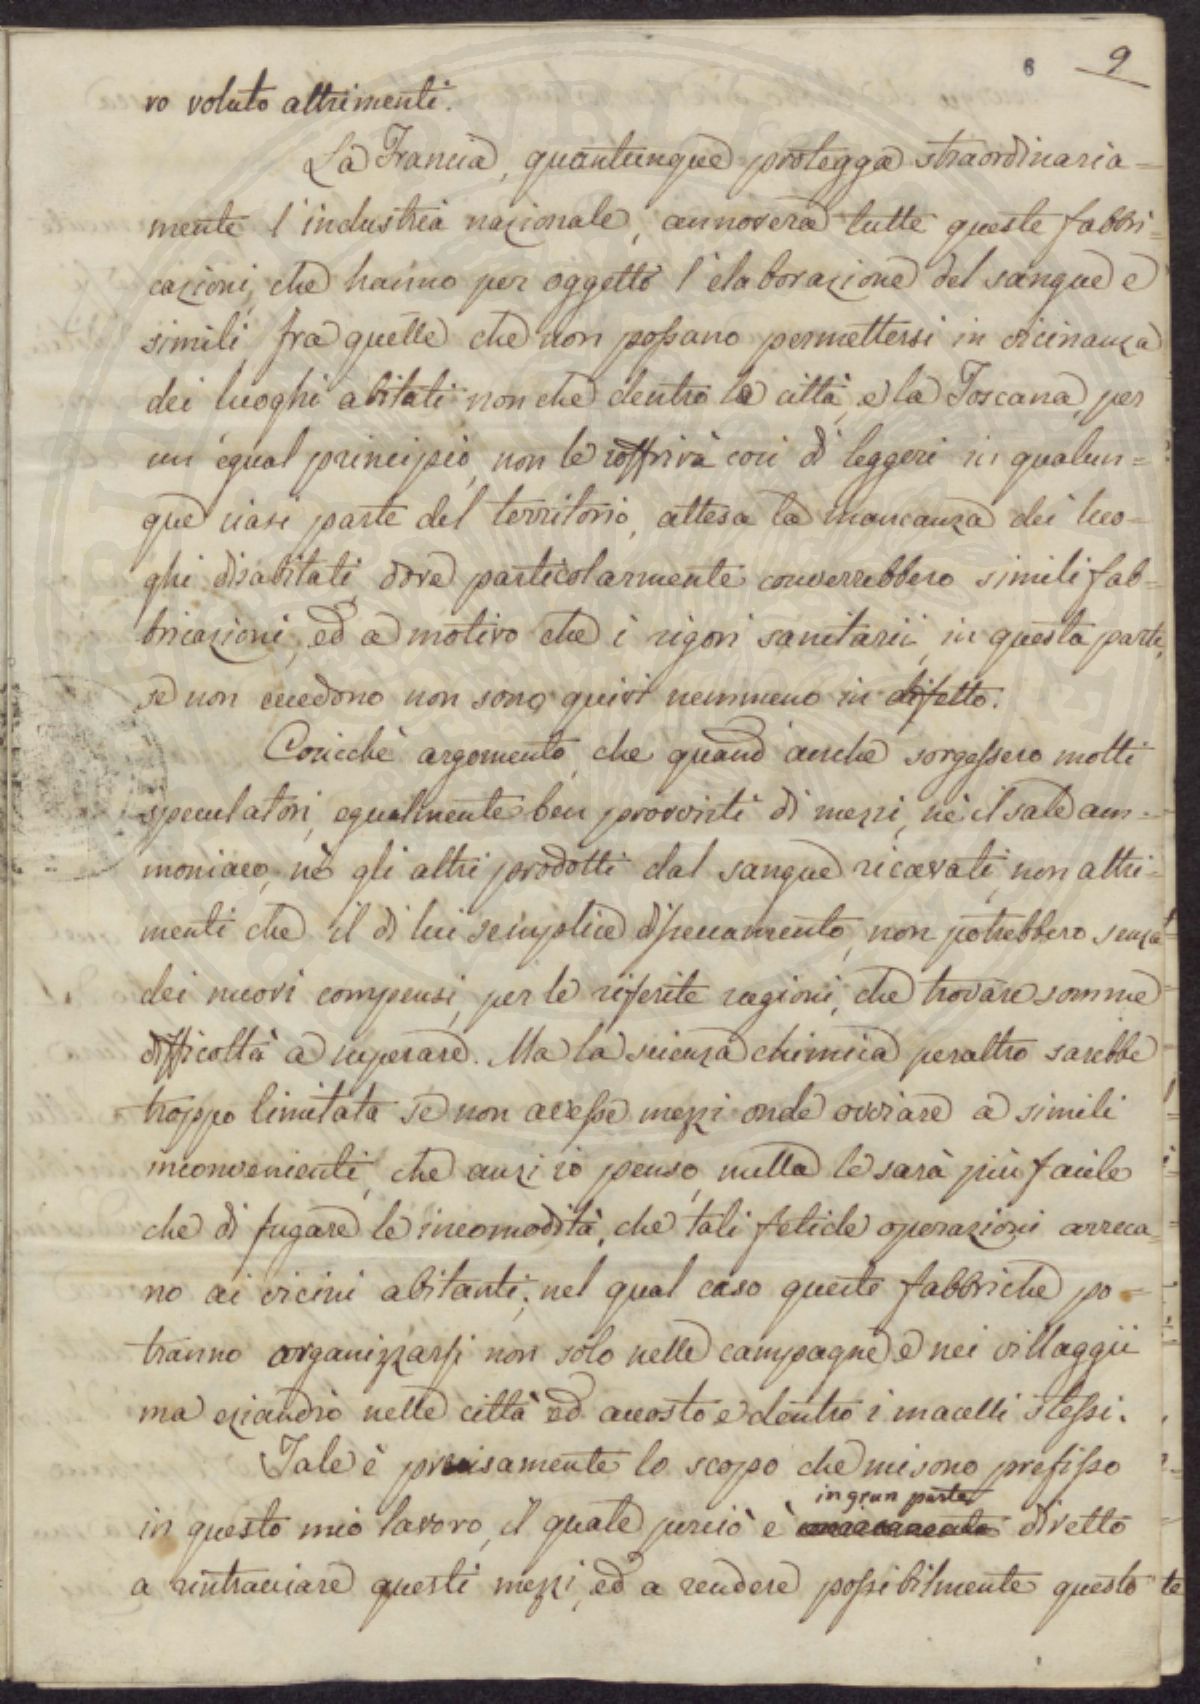 6 9
vo voluto altrimenti.
La Francia, quantunque protegga straordinaria=
mente l'industria nazionale, annovera tutte queste fabbri=
cazioni, che hanno per oggetto l'elaborazione del sangue e
simili, fra quelle che non possano permettersi in vicinanza
dei luoghi abitati non che dentro le città, e la Toscana, per
un egual principio, non le soffrirà così di leggeri in qualun=
que siasi parte del territorio, attesa la mancanza dei luo=
ghi disabitati, dove particolarmente converrebbero simili fab=
bricazioni, ed a motivo che i rigori sanitarii, in questa parte,
se non eccedono non sono quivi nemmeno in difetto.
Cosicchè argomento, che quand'anche sorgessero molti
speculatori, egualmente ben provvisti di mezzi, nè il sale am=
moniaco, nè gli altri prodotti dal sangue ricavati, non altri=
menti che il di lui semplice disseccamento, non potrebbero senza
dei nuovi compensi, per le riferite ragioni, che trovare somme
difficoltà a superare. Ma la scienza chimica peraltro sarebbe
troppo limitata se non avesse mezzi onde ovviare a simili
inconvenienti, che anzi io penso, nulla le sarà più facile
che di fugare le incomodità, che tali fetide operazioni arreca=
no ai vicini abitanti; nel qual caso queste fabbriche po=
tranno organizzarsi non solo nelle campagne e nei villaggii
ma eziandio nelle città ed accosto e dentro i macelli stessi.
Tale è precisamente lo scopo che mi sono prefisso
in gran parte
in questo mio lavoro, il quale perciò è diretto
a rintracciare questi mezzi, ed a rendere possibilmente questo te